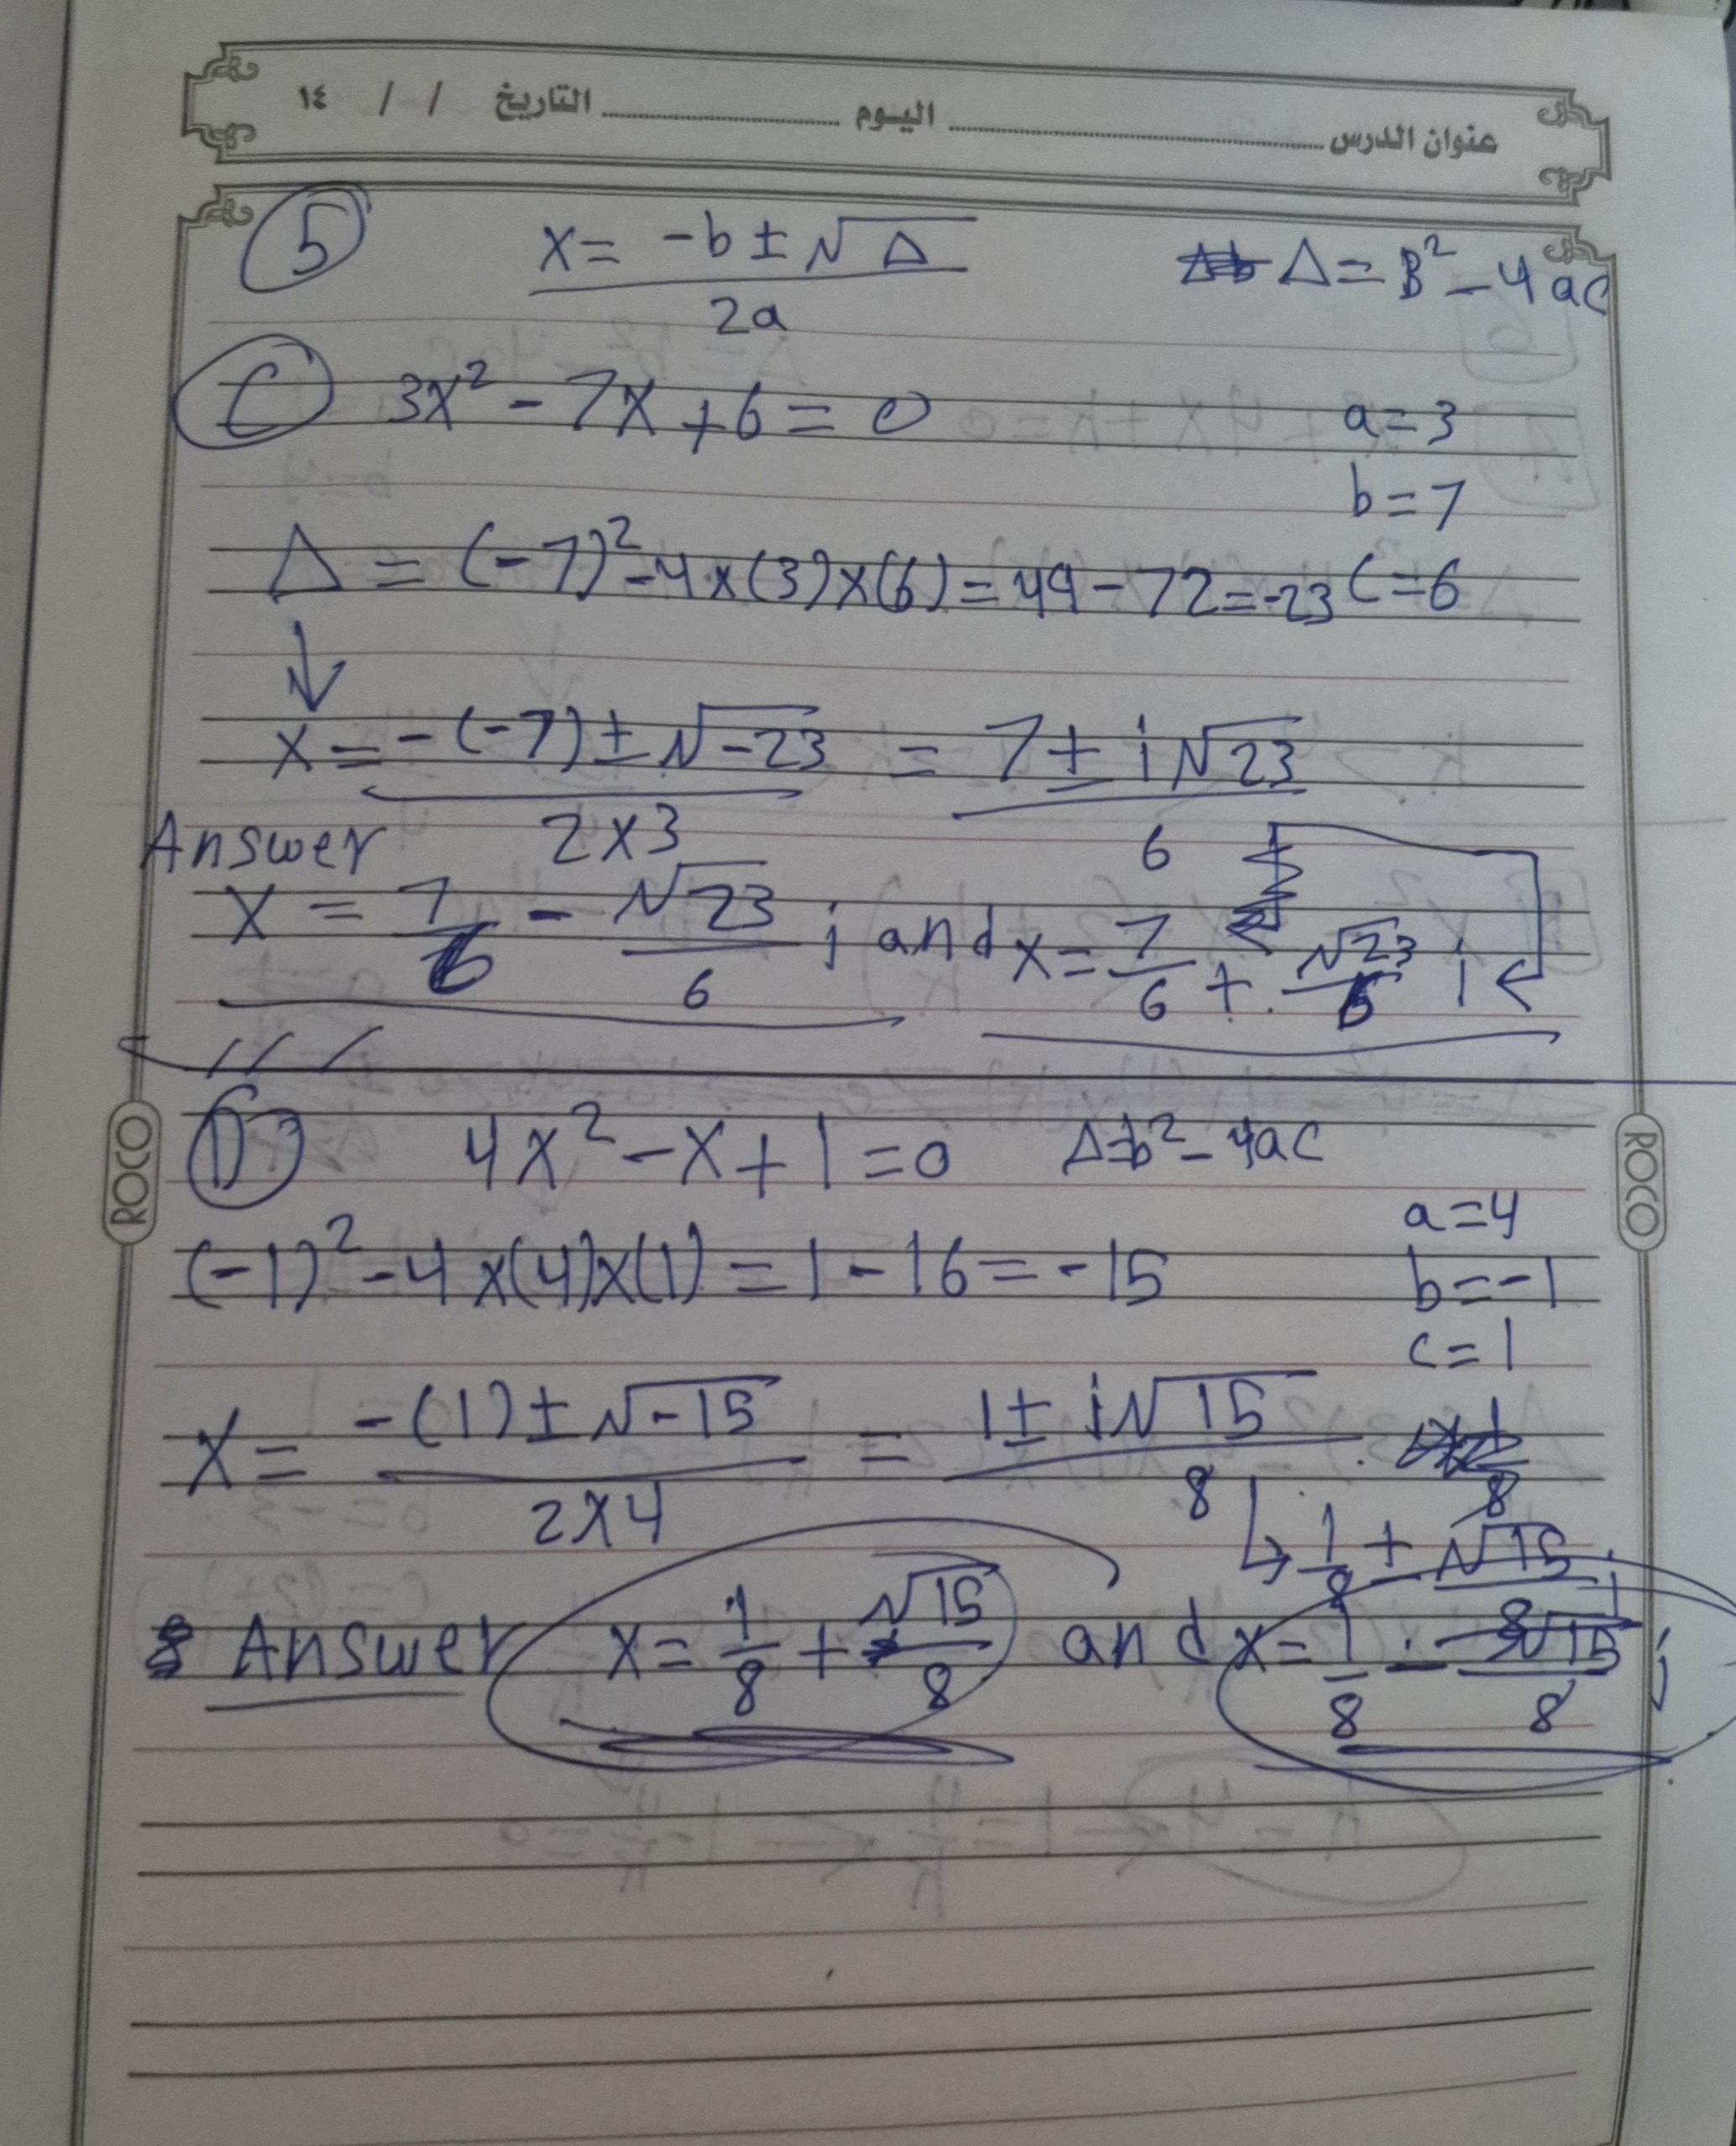 عنوان الدرس اليوم التاريخ / / ١٤
5 x = -b ± √Δ / 2a Δ = B² - 4ac
C 3x² - 7x + 6 = 0 a = 3
b = 7
Δ = (-7)² - 4 x (3) x (6) = 49 - 72 = -23 C = 6
↓
x = -(-7) ± √-23 / 2x3 = 7 ± i√23 / 6
Answer
x = 7/6 - √23/6 i and x = 7/6 + √23/6 i
ROCO
ROCO
D 4x² - x + 1 = 0 Δ = b² - 4ac
a = 4
(-1)² - 4 x (4) x (1) = 1 - 16 = -15 b = -1
c = 1
x = -(1) ± √-15 / 2x4 = 1 ± i√15 / 8
↳ 1/8 + √15/8 i
Answer x = 1/8 + √15/8 and x = 1/8 - √15/8 i